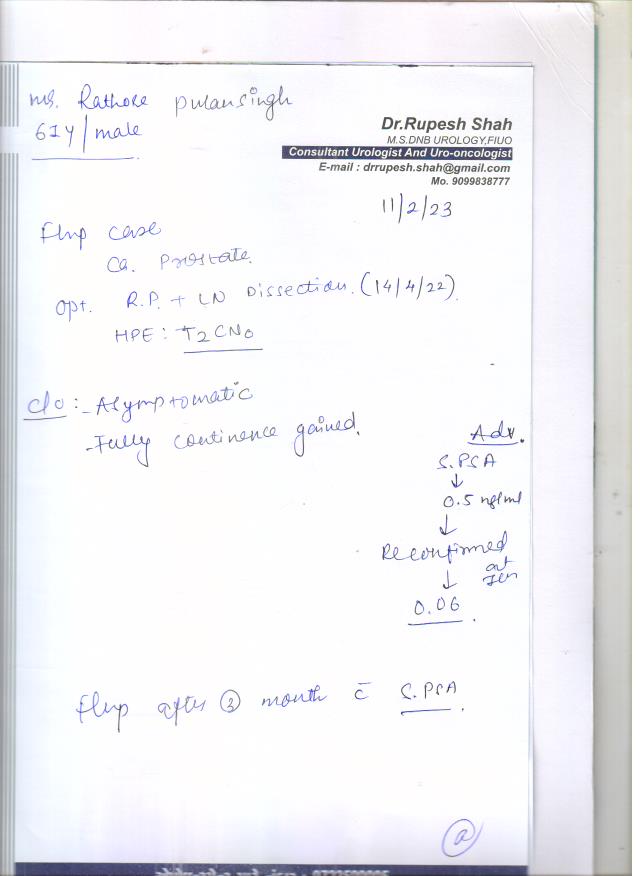 Mr. Rathore Puransingh
61Y/male
Dr.Rupesh Shah
M.S.DNB UROLOGY,FIUO
Consultant Urologist And Uro-oncologist
E-mail : drrupesh.shah@gmail.com
Mo. 9099838777
11/2/23
F/up case
Ca. Prostate.
Opt. R.P. + LN Dissection. (14/4/22).
HPE : T2CN0
C/o :- Asymptomatic
- Fully continence gained.
Adv.
S.PSA
↓
0.5 ng/ml
↓
Reconfirmed
at
↓
0.06
F/up after 3 month c̄ S.PSA